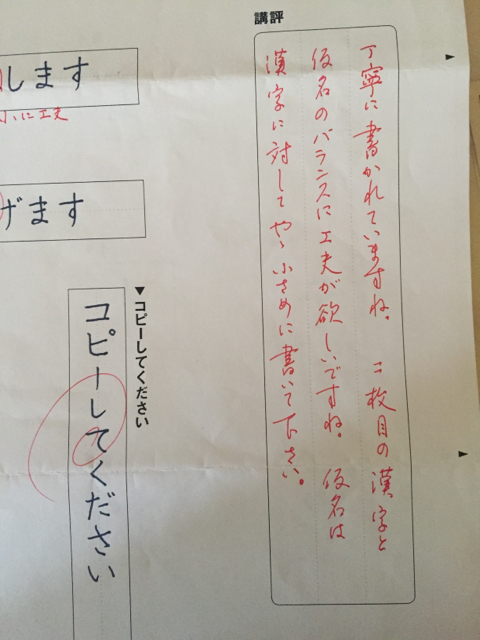 講評
丁寧に書かれていますね。二枚目の漢字と
仮名のバランスに工夫が欲しいですね。仮名は
漢字に対してやゝ小さめに書いて下さい。
▼コピーしてください
コピーしてください
します
小に工夫
げます